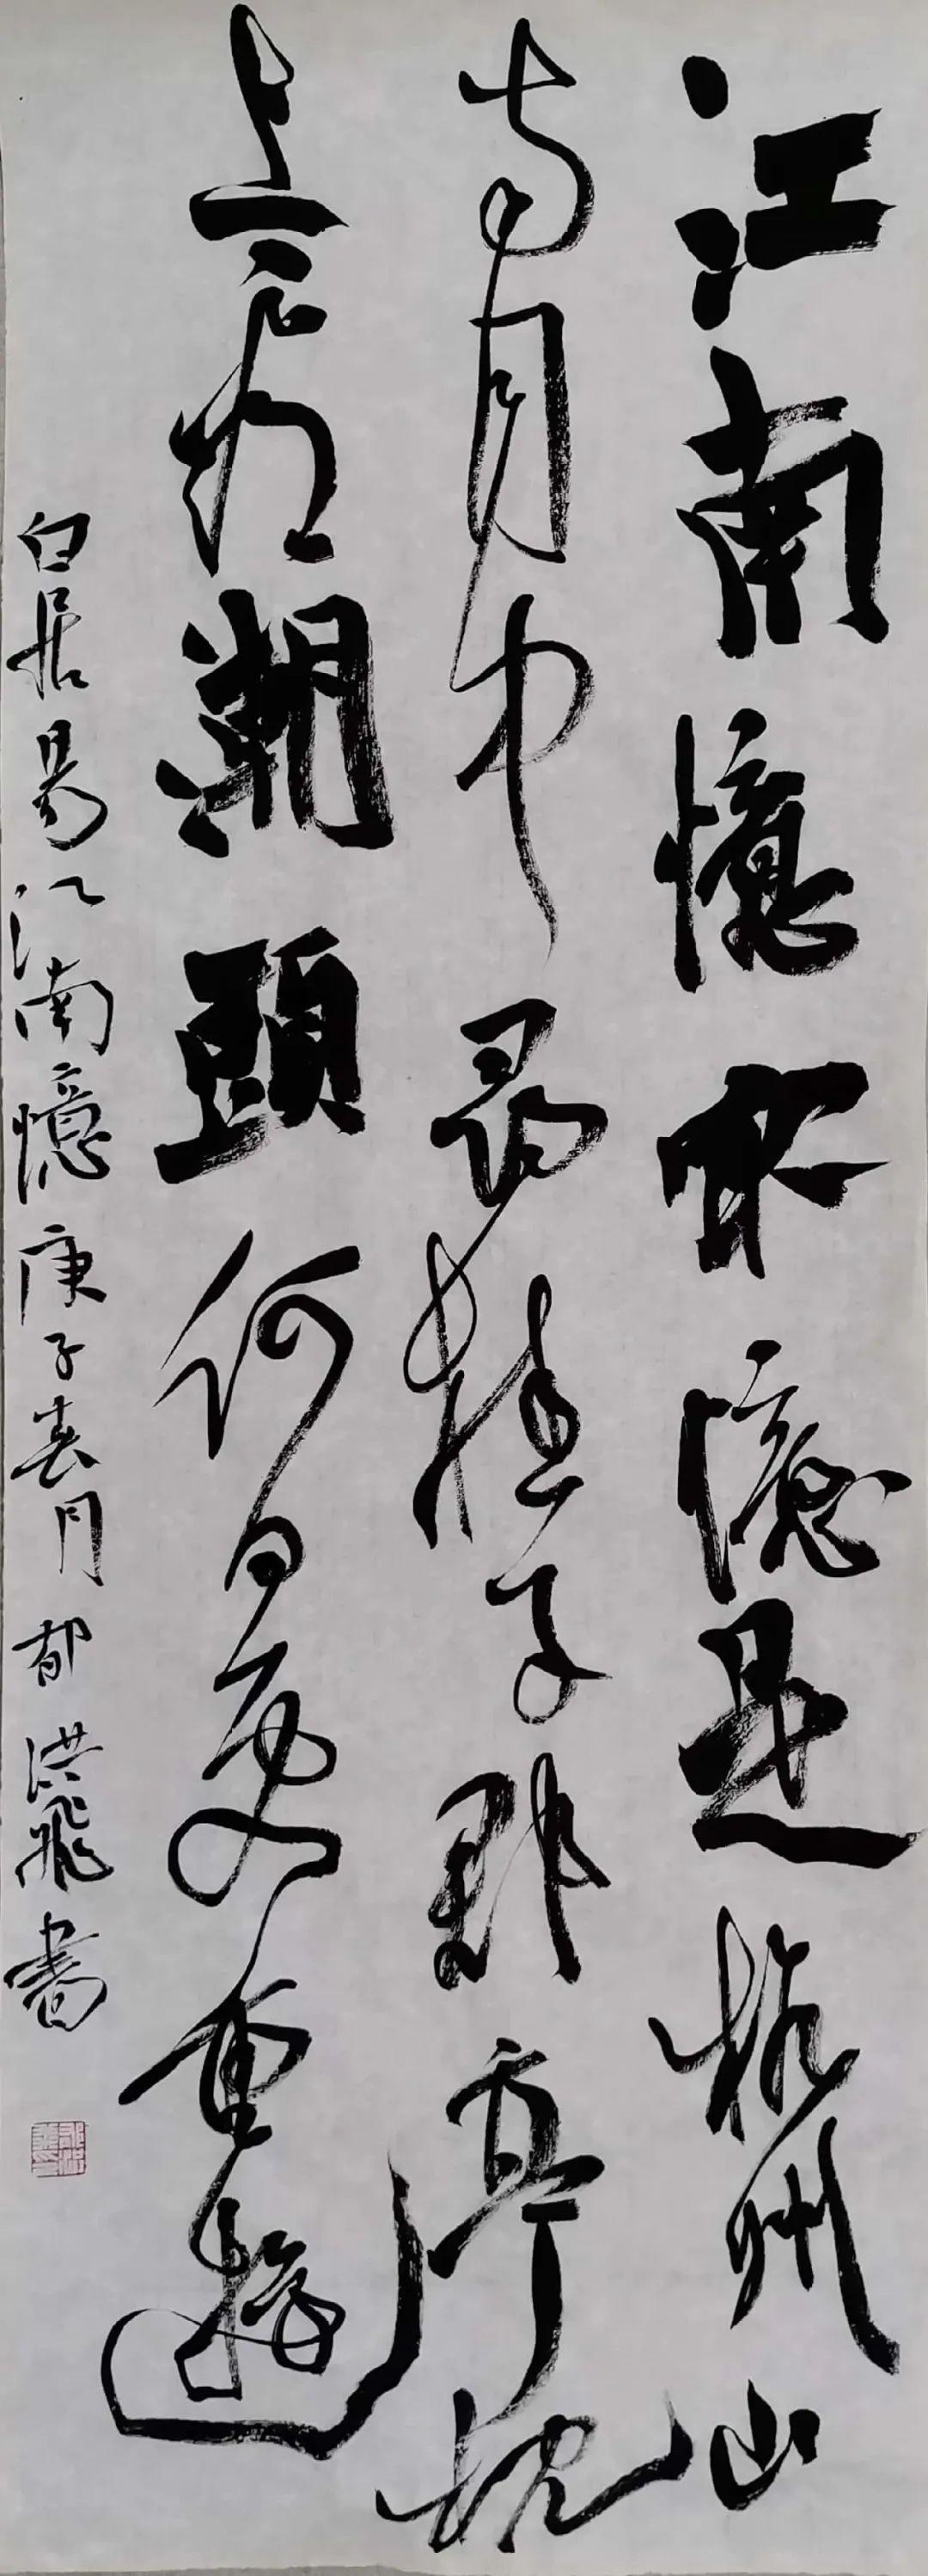 江南憶最憶是杭州山
寺月中尋桂子郡亭枕
上看潮頭何日更重遊
白居易江南憶庚子春月郁洪飛書